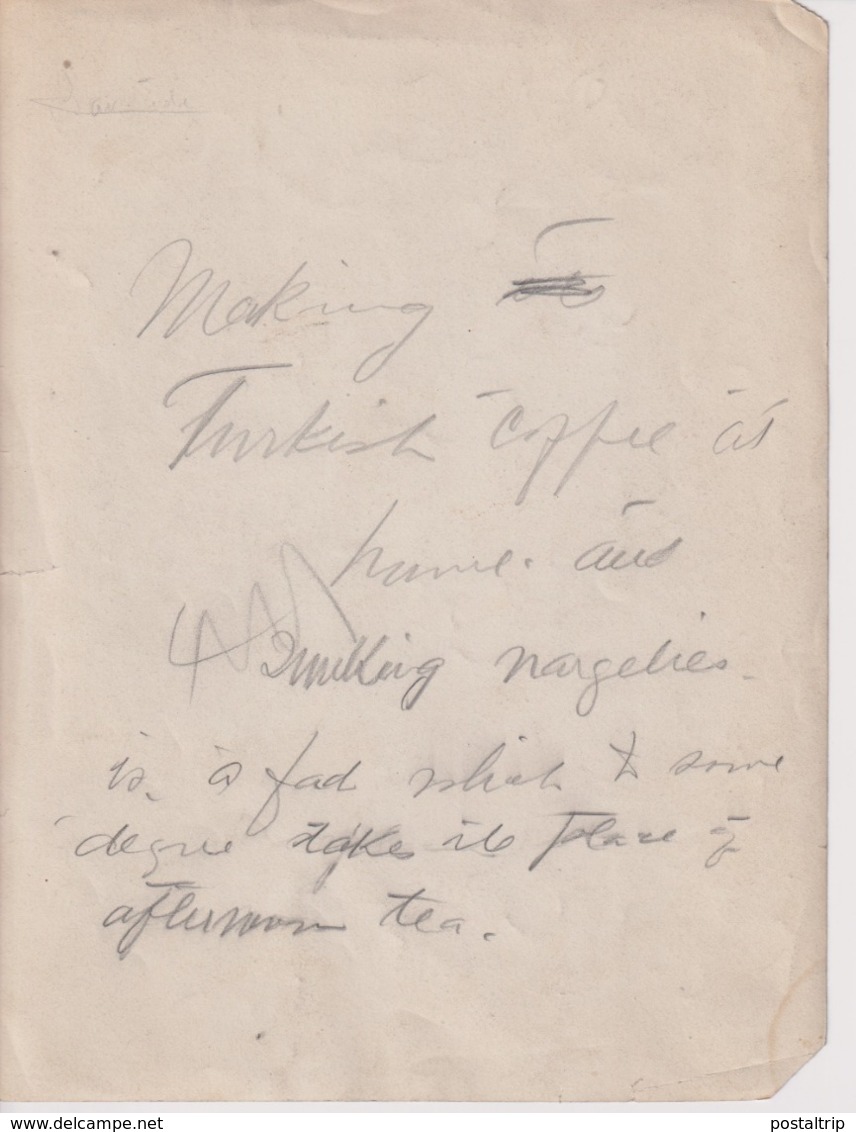 Making
Turkish coffee at
home. and
Smoking nargelies
is a fad which to some
degree takes its place of
afternoon tea.
www.delcampe.net
postaltrip